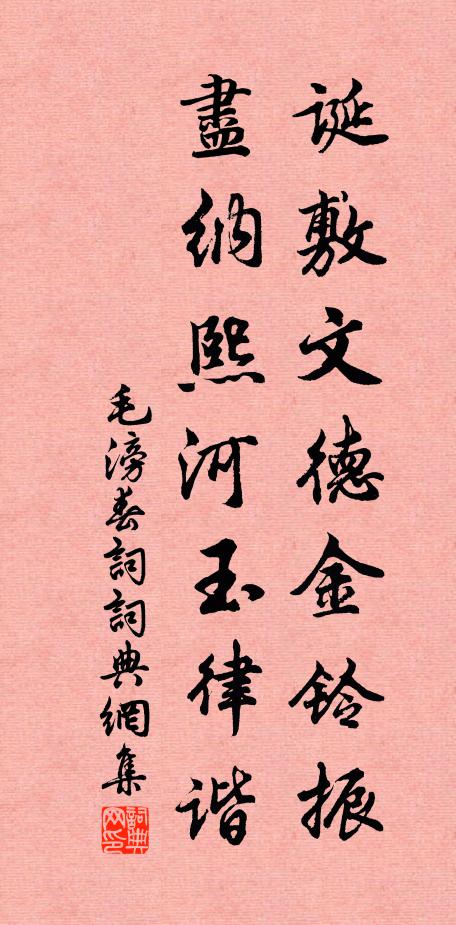 誕敷文德金鈴振
盡納熙河玉律諧
毛滂春詞詞典網集
詞典网印